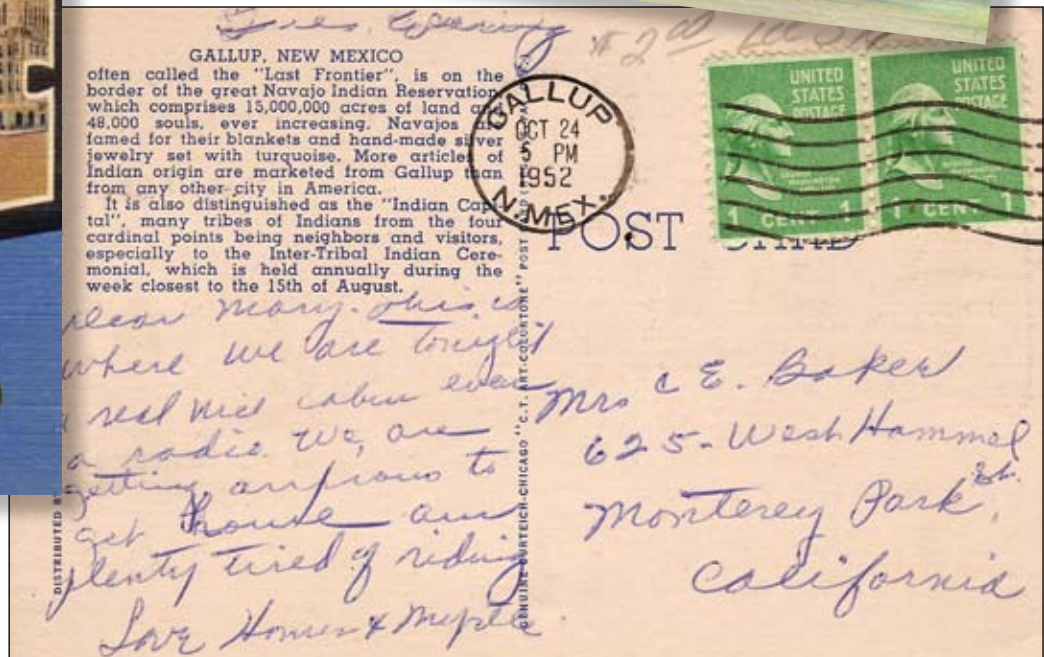 Tues, Evening
$2.00
GALLUP, NEW MEXICO
often called the "Last Frontier", is on the
border of the great Navajo Indian Reservation
which comprises 15,000,000 acres of land and
48,000 souls, ever increasing. Navajos are
famed for their blankets and hand-made silver
jewelry set with turquoise. More articles of
Indian origin are marketed from Gallup than
from any other city in America.
It is also distinguished as the "Indian Capi-
tal", many tribes of Indians from the four
cardinal points being neighbors and visitors,
especially to the Inter-Tribal Indian Cere-
monial, which is held annually during the
week closest to the 15th of August.
Dear Mary. This is
where we are tonight
a real nice cabin even
a radio. We are
getting anxious to
get home am
plenty tired of riding
Love Homer & Myrtle
DISTRIBUTED BY
GENUINE CURTEICH-CHICAGO "C.T. ART-COLORTONE" POST
GALLUP
OCT 24
5 PM
1952
N. MEX.
UNITED
STATES
POSTAGE
1 CENT 1
UNITED
STATES
POSTAGE
1 CENT 1
POST CARD
Mrs C E. Baker
625 - West Hammel
St.
Monterey Park,
California